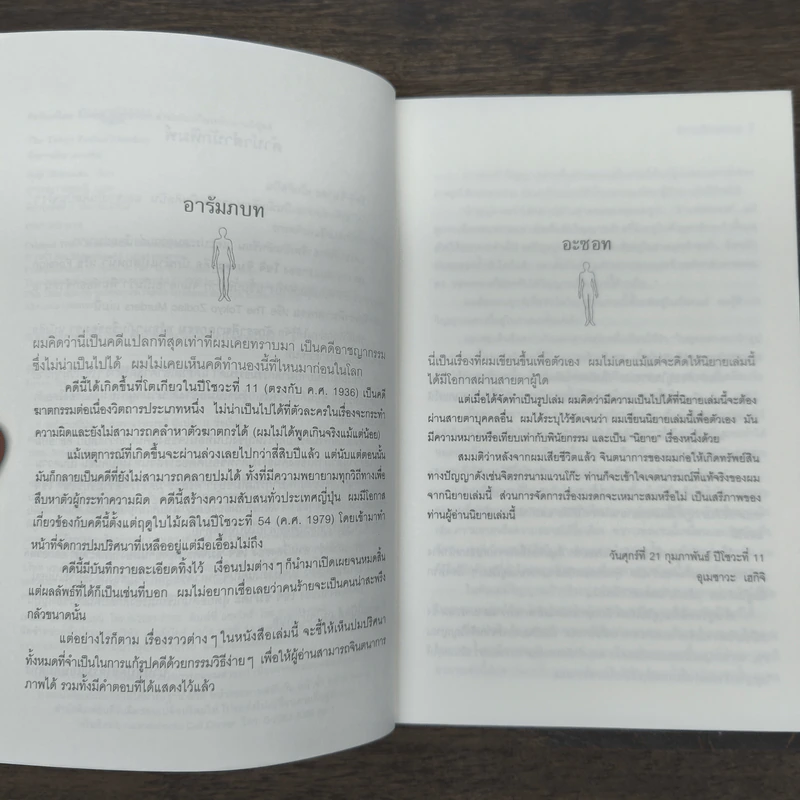 อารัมภบท
ผมคิดว่านี่เป็นคดีแปลกที่สุดเท่าที่ผมเคยทราบมา เป็นคดีอาชญากรรม
ซึ่งไม่น่าเป็นไปได้ ผมไม่เคยเห็นคดีทำนองนี้ที่ไหนมาก่อนในโลก
คดีนี้ได้เกิดขึ้นที่โตเกียวในปีโชวะที่ 11 (ตรงกับ ค.ศ. 1936) เป็นคดี
ฆาตกรรมต่อเนื่องวิตถารประเภทหนึ่ง ไม่น่าเป็นไปได้ที่ตัวละครในเรื่องจะกระทำ
ความผิดและยังไม่สามารถคลำหาตัวฆาตกรได้ (ผมไม่ได้พูดเกินจริงแม้แต่น้อย)
แม้เหตุการณ์ที่เกิดขึ้นจะผ่านล่วงเลยไปกว่าสี่สิบปีแล้ว แต่นับแต่ตอนนั้น
มันก็กลายเป็นคดีที่ยังไม่สามารถคลายปมได้ ทั้งที่มีความพยายามทุกวิถีทางเพื่อ
สืบหาตัวผู้กระทำความผิด คดีนี้สร้างความสับสนทั่วประเทศญี่ปุ่น ผมมีโอกาส
เกี่ยวข้องกับคดีนี้ตั้งแต่ฤดูใบไม้ผลิในปีโชวะที่ 54 (ค.ศ. 1979) โดยเข้ามาทำ
หน้าที่จัดการปมปริศนาที่เหลืออยู่แต่มือเอื้อมไม่ถึง
คดีนี้มีบันทึกรายละเอียดทิ้งไว้ เงื่อนปมต่างๆ ก็นำมาเปิดเผยจนหมดสิ้น
แต่ผลลัพธ์ที่ได้ก็เป็นเช่นที่บอก ผมไม่อยากเชื่อเลยว่าคนร้ายจะเป็นคนน่าสะพรึง
กลัวขนาดนั้น
แต่อย่างไรก็ตาม เรื่องราวต่างๆ ในหนังสือเล่มนี้ จะชี้ให้เห็นปมปริศนา
ทั้งหมดที่จำเป็นในการแก้รูปคดีด้วยกรรมวิธีง่ายๆ เพื่อให้ผู้อ่านสามารถจินตนาการ
ภาพได้ รวมทั้งมีคำตอบที่ได้แสดงไว้แล้ว
อะซอท
นี่เป็นเรื่องที่ผมเขียนขึ้นเพื่อตัวเอง ผมไม่เคยแม้แต่จะคิดให้นิยายเล่มนี้
ได้มีโอกาสผ่านสายตาผู้ใด
แต่เมื่อได้จัดทำเป็นรูปเล่ม ผมคิดว่ามีความเป็นไปได้ที่นิยายเล่มนี้จะต้อง
ผ่านสายตาบุคคลอื่น ผมได้ระบุไว้ชัดเจนว่า ผมเขียนนิยายเล่มนี้เพื่อตัวเอง มัน
มีความหมายหรือเทียบเท่ากับพินัยกรรม และเป็น “นิยาย” เรื่องหนึ่งด้วย
สมมติว่าหลังจากผมเสียชีวิตแล้ว จินตนาการของผมก่อให้เกิดทรัพย์สิน
ทางปัญญาดังเช่นจิตรกรนามแวนโก๊ะ ท่านก็จะเข้าใจเจตนารมณ์ที่แท้จริงของผม
จากนิยายเล่มนี้ ส่วนการจัดการเรื่องมรดกจะเหมาะสมหรือไม่ เป็นเสรีภาพของ
ท่านผู้อ่านนิยายเล่มนี้
วันศุกร์ที่ 21 กุมภาพันธ์ ปีโชวะที่ 11
อุเมซาวะ เฮกิจิ